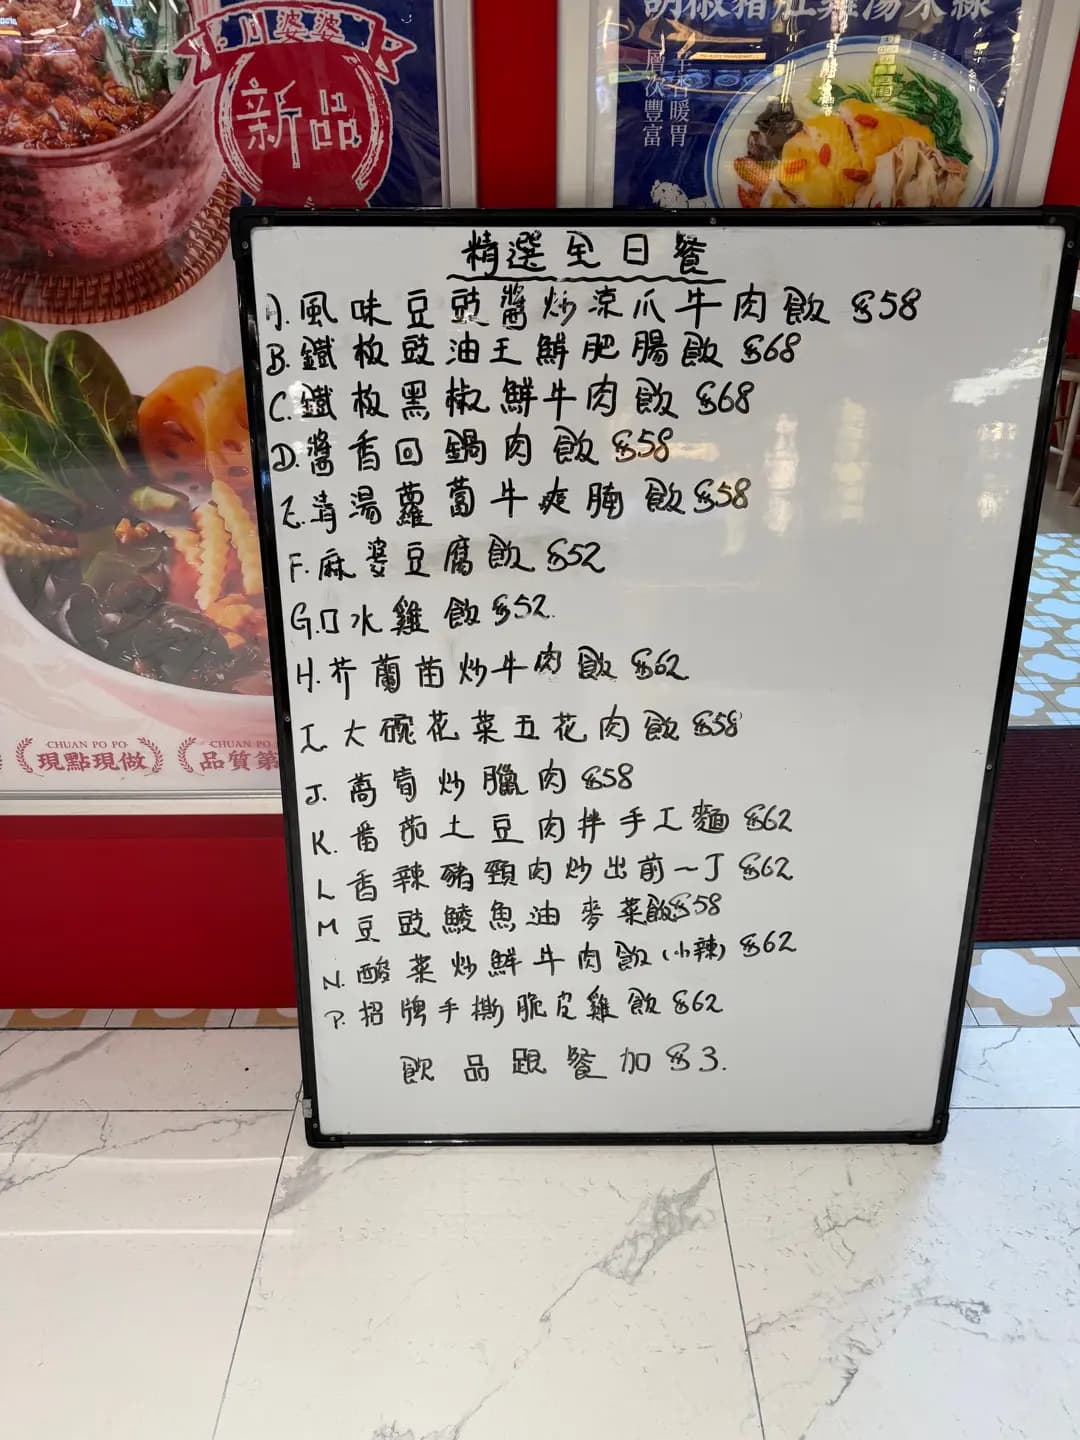 川婆婆
新品
胡椒豬肚雞湯米線
層次豐富
CHUAN PO PO
現點現做
CHUAN PO
品質第
精選全日餐
A.風味豆豉醬炒涼瓜牛肉飯 $58
B.鐵板豉油王鮮肥腸飯 $68
C.鐵板黑椒鮮牛肉飯 $68
D.醬香回鍋肉飯 $58
E.清湯蘿蔔牛爽腩飯 $58
F.麻婆豆腐飯 $52
G.口水雞飯 $52.
H.芥蘭苗炒牛肉飯 $62
I.大碗花菜五花肉飯 $58
J.萵筍炒臘肉 $58
K.番茄土豆肉拌手工麵 $62
L香辣豬頸肉炒出前一丁 $62
M豆豉鯪魚油麥菜飯 $58
N.酸菜炒鮮牛肉飯(小辣) $62
P.招牌手撕脆皮雞飯 $62
飲品跟餐加 $3.